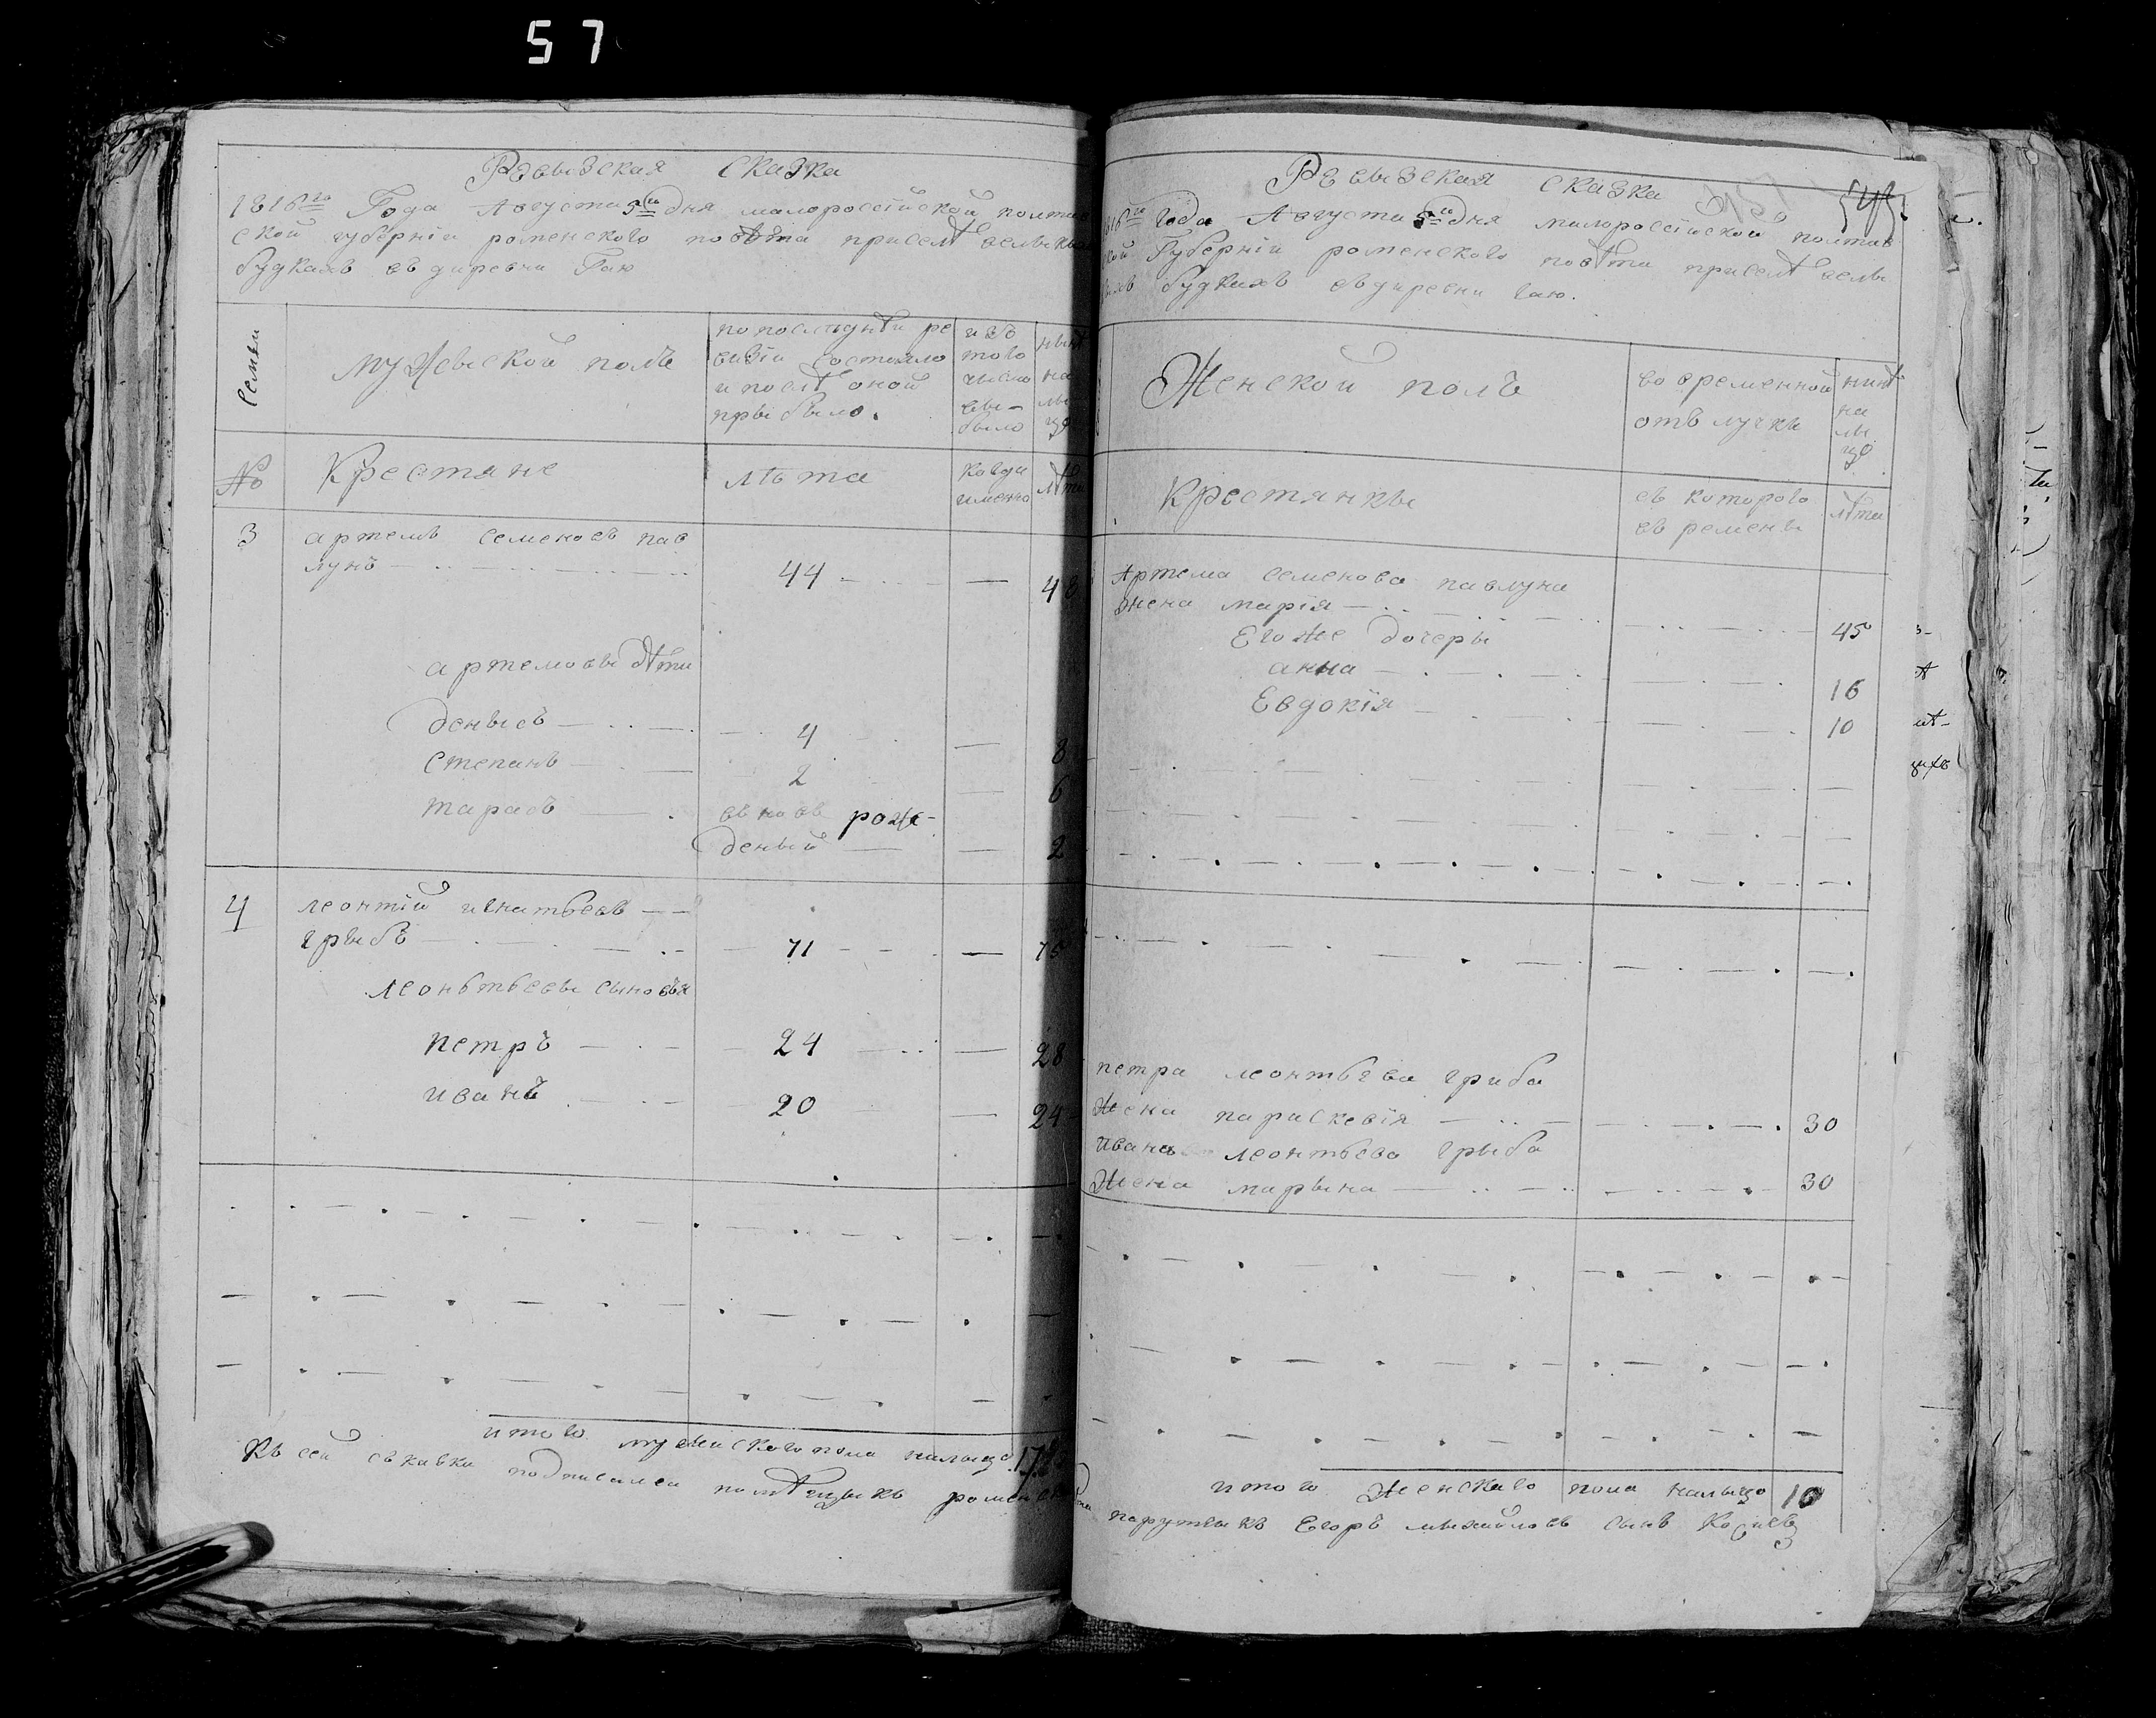 57
Ревызская сказка
1816го Года Августа 5го дня малороссійской полтав
ской губерніи роменского повѣта приселѣ велыкы
будкахъ въ диревни Гаю
семьи
мужеыской полъ
попослѣднѣи ре
визіи состояло
и послѣ оной
прыбыло.
изъ
того
числа
вы-
было
нынѣ
на
лы
цо
№
Крестяне
лѣта
когда
именно
лѣта
3
артемъ семеновъ пав
лунъ
44
48
артемовы дѣти
денысъ
4
8
степанъ
2
6
тарасъ
вьновь рож-
деный
2
4
леонтій игнатьевъ
грыбъ
71
75
леоньтьевы сыновья
петръ
24
28
иванъ
20
24
итого мужиского пола налыцо 17
Къ сей сказки подписался помѣщыкъ роменской
Ревызская сказка
1816го года Августа 5го дня малороссійской полтав
ской Губерніи роменского повѣта приселѣ велы
кихъ будкахъ въ диревни гаю.
Женской полъ
во временной
отълучкы
нинѣ
на
лы
цо
Крестянкы
съ которого
въремены
лѣта
Артема семенова павлуна
жена марія
45
Егоже дочеры
анна
16
Евдокія
10
петра леонтьева гриба
жена парискевія
30
Ивана леонтьева грыба
жена марына
30
итого женскаго пола налыцо 10
поручыкъ Егоръ михайловъ сынъ